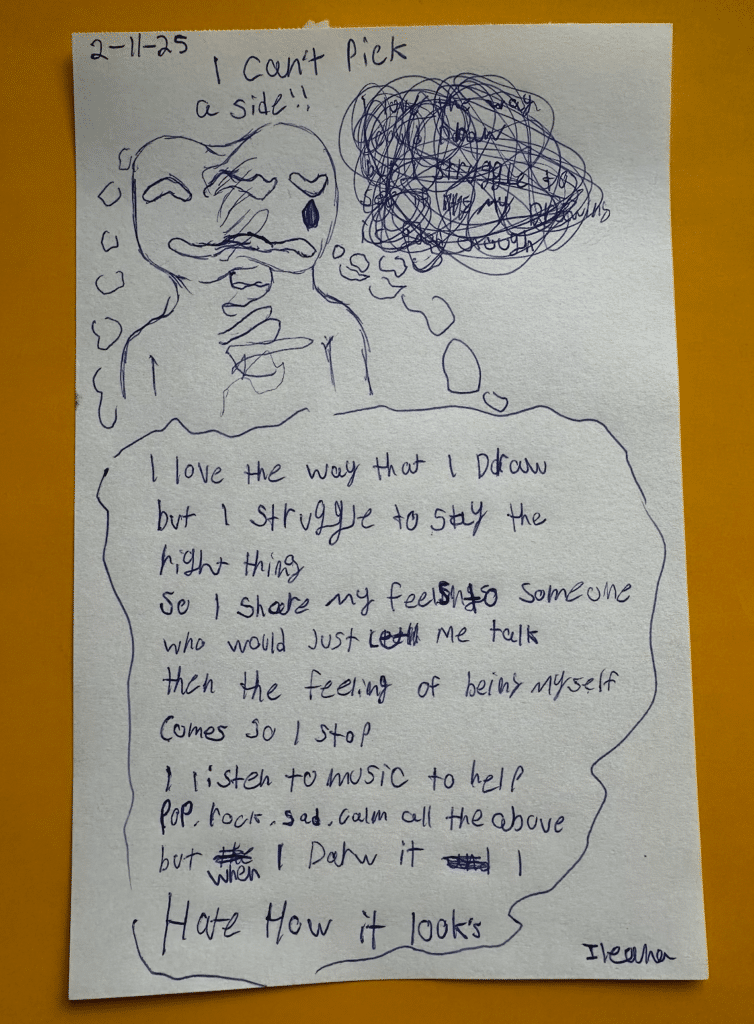 2-11-25
I can't Pick
a side!!
I love the way
I Draw
but I struggle to
like my
enough
I love the way that I Ddraw
but I struggle to stay the
right thing
So I share my feelings to someone
who would just let me talk
then the feeling of being myself
Comes so I stop
I listen to music to help
POP, rock, sad, calm all the above
but when I Darw it I
Hate How it look's
Ileana